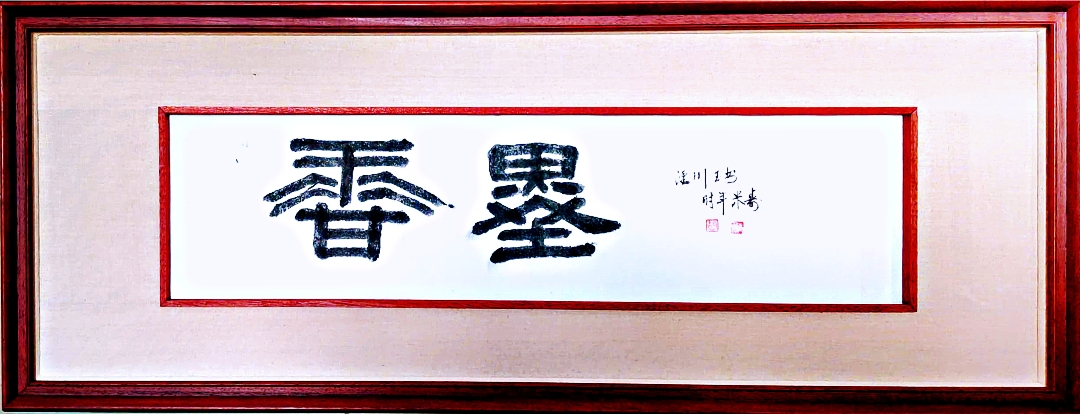 墨香
川王书
时年米寿